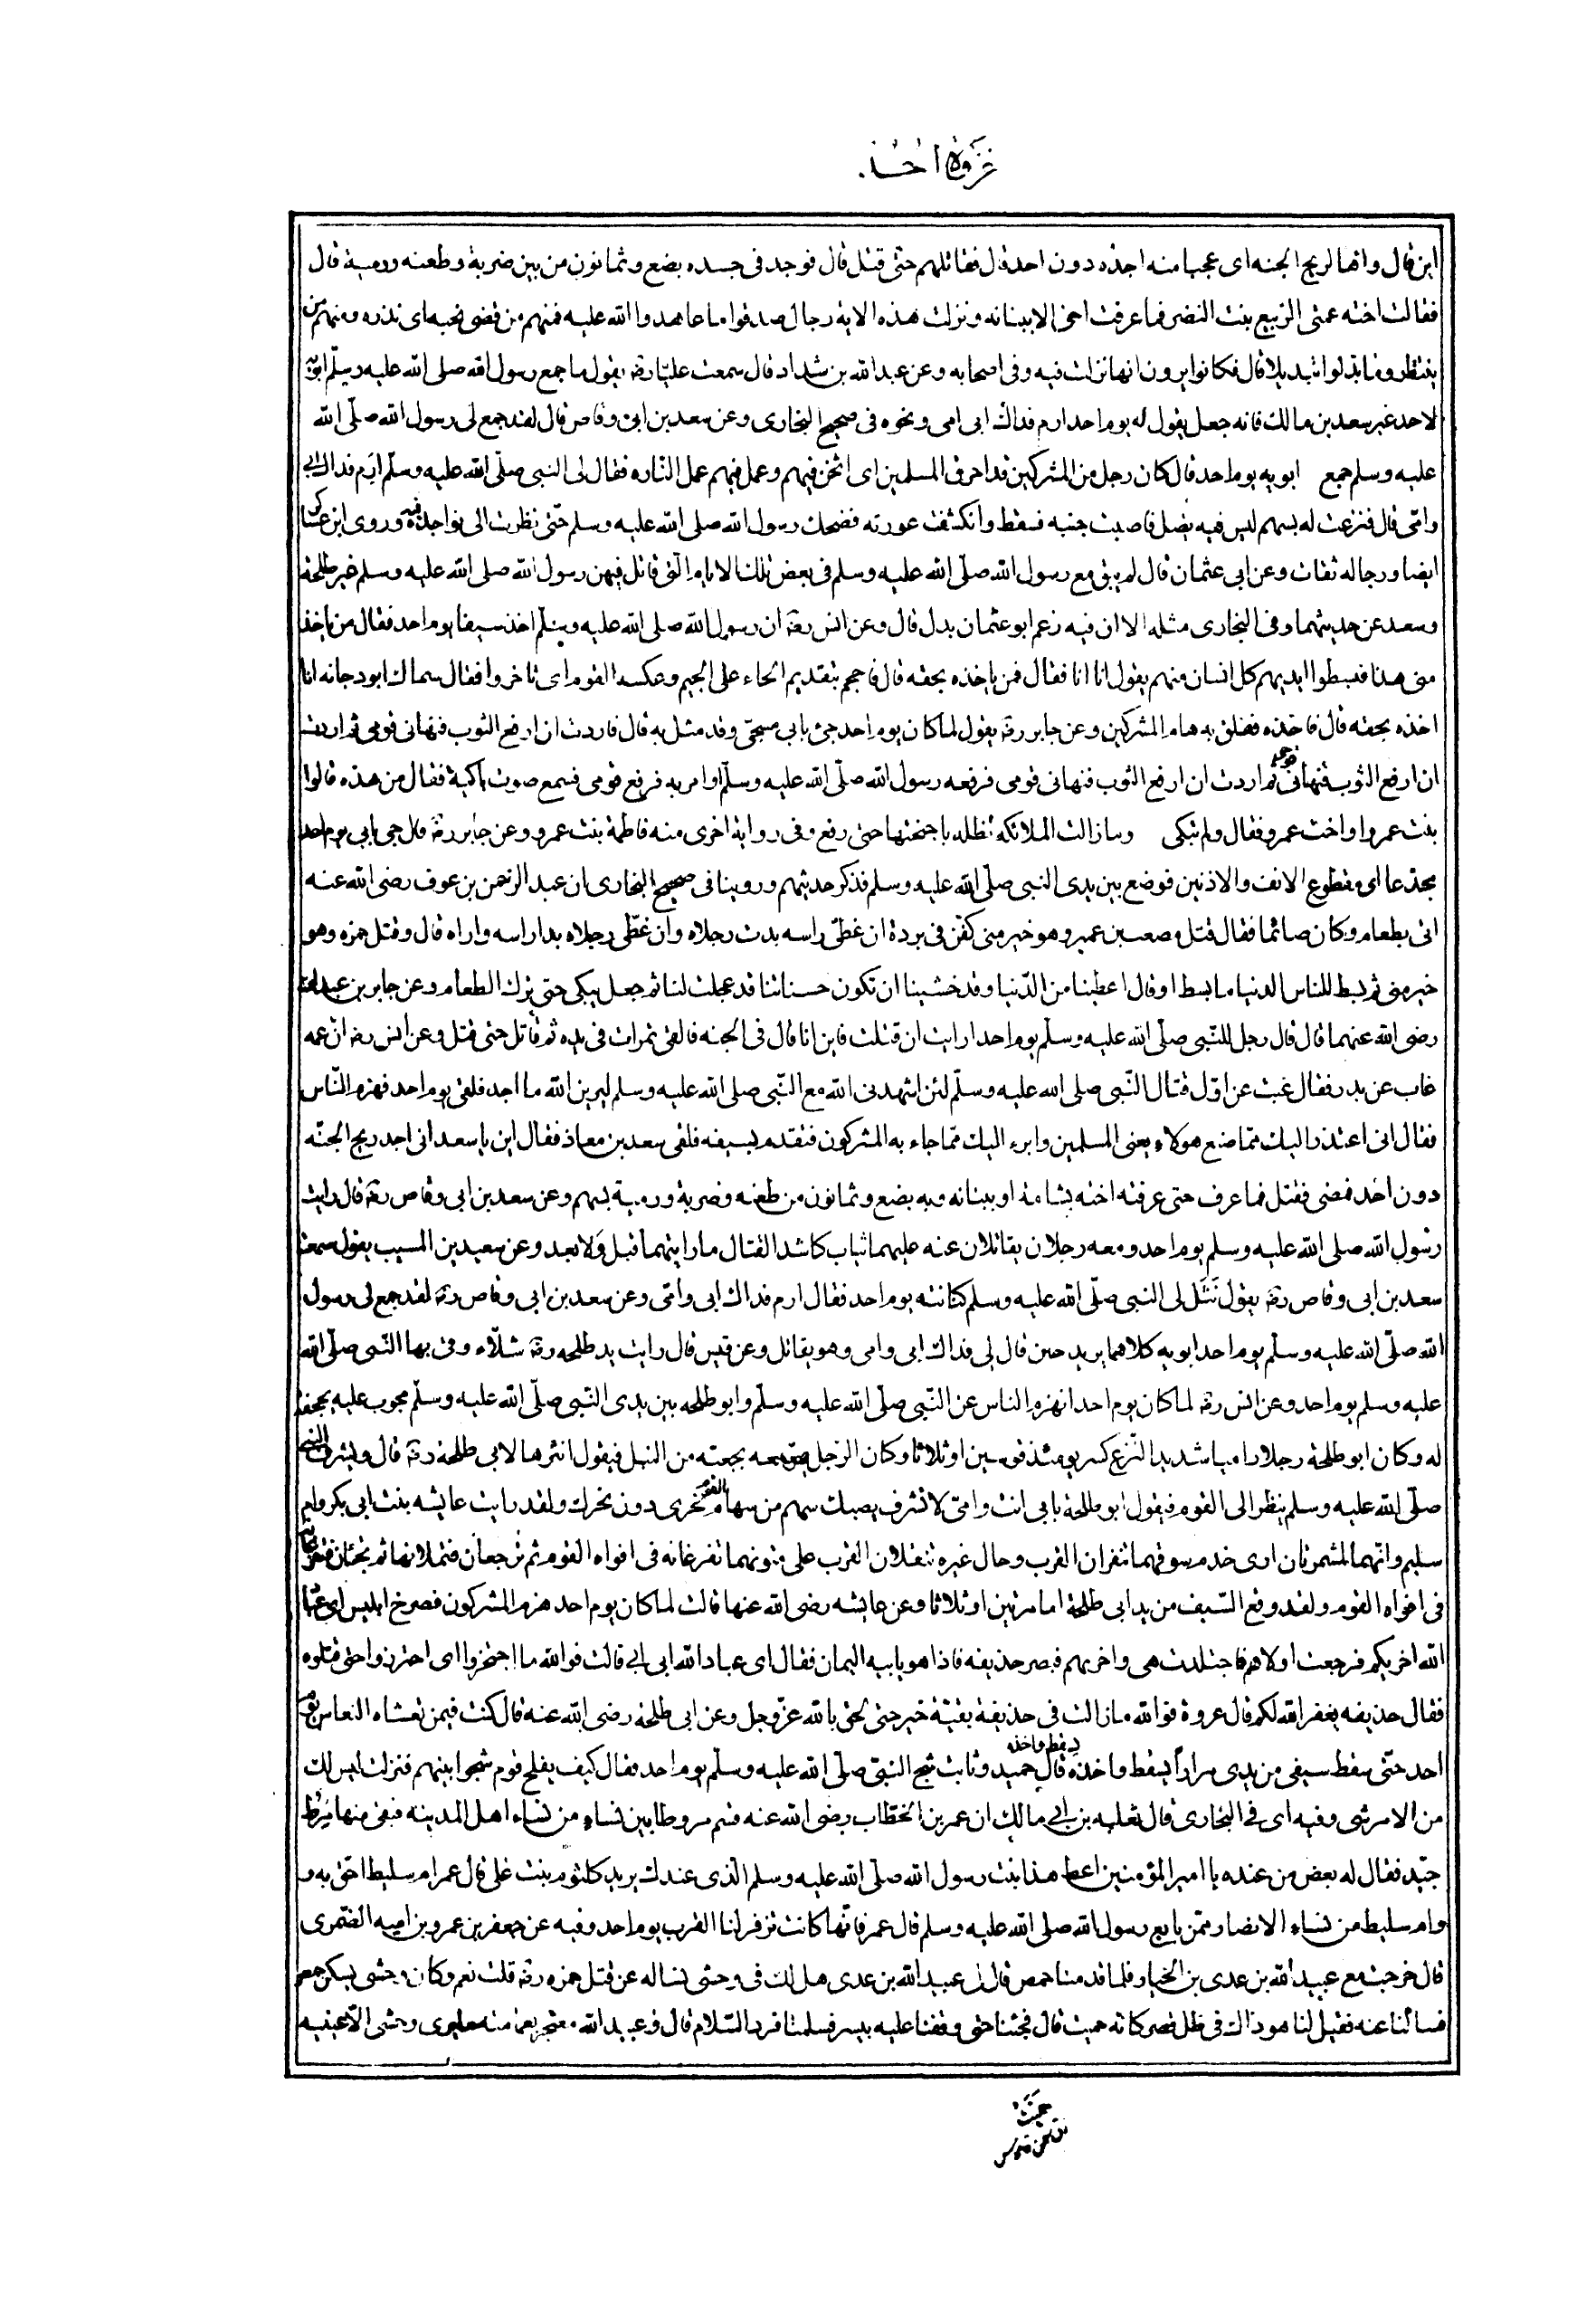 غزوة احد
اين قال واها لريح الجنه اى عجبا منه اجذه دون احد قال فقاتلهم حتى قتل قال فوجد فى جسده بضع وثمانون من بين ضربة وطعنه ورمية قال
فقالت اخته عمتى الربيع بنت النضر فما عرفت اخى الا ببنانه ونزلت هذه الاية رجال صدقوا ما عاهدوا الله عليه فمنهم من قضى نحبه اى نذره ومنهم من
ينتظر وما بدلوا تبديلا قال فكانوا يرون انها نزلت فيه وفى اصحابه وعن عبد الله بن شداد قال سمعت عليا رضه يقول ما جمع رسول الله صلى الله عليه وسلم ابويه
لاحد غير سعد بن مالك فانه جعل يقول له يوم احد ارم فداك ابى امى ونحوه فى صحيح البخارى وعن سعد بن ابى وقاص قال لقد جمع لى رسول الله صلى الله
عليه وسلم جمع ابويه يوم احد قال كان رجل من المشركين قد احرق المسلمين اى اثخن فيهم وعمل فيهم عمل الناره فقال لى النبى صلى الله عليه وسلم ارم فداك ابى
وامى قال فنزعت له بسهم ليس فيه نصل فاصبت جنبه فسقط وانكشفت عورته فضحك رسول الله صلى الله عليه وسلم حتى نظرت الى نواجذه فيه وروى ابن عساكر
ايضا ورجاله ثقات وعن ابى عثمان قال لم يبق مع رسول الله صلى الله عليه وسلم فى بعض تلك الايام التى قاتل فيهن رسول الله صلى الله عليه وسلم غير طلحة
وسعد عن حديثهما وفى البخارى مثله الا ان فيه زعم ابو عثمان بدل قال وعن انس رضه ان رسول الله صلى الله عليه وسلم اخذ سيفا يوم احد فقال من ياخذ
منى هذا فبسطوا ايديهم كل انسان منهم يقول انا انا فقال فمن ياخذه بحقه قال فاحجم بتقديم الحاء على الجيم وعكسه القوم اى تاخروا فقال سماك ابو دجانه انا
اخذه بحقه قال فاخذه ففلق به هام المشركين وعن جابر رضه يقول لما كان يوم احد جئ بابى مسجى وقد مثل به قال فاردت ان ارفع الثوب فنهانى قومى ثم اردت
ان ارفع الثوب فنهانى قومى ثم اردت ان ارفع الثوب فنهانى قومى فرفعه رسول الله صلى الله عليه وسلم او امر به فرفع قومى فسمع صوت باكية فقال من هذه قالوا
بنت عمرو او اخت عمرو فقال ولم تبكى وما زالت الملائكه تظله باجنحتها حتى رفع وفى رواية اخرى منه فاطمة بنت عمرو وعن جابر رضه قال جى بابى يوم احد
مجدعا اى مقطوع الانف والاذنين فوضع بين يدى النبى صلى الله عليه وسلم فذكر حديثهم وروينا فى صحيح البخارى ان عبد الرحمن بن عوف رضى الله عنه
اتى بطعام وكان صائما فقال قتل مصعب بن عمير وهو خير منى كفن فى بردة ان غطى راسه بدت رجلاه وان غطى رجلاه بدا راسه واراه قال وقتل حمزه وهو
خير منى ثم بسط للناس الدنيا ما بسط او قال اعطينا من الدنيا وقد خشينا ان تكون حسناتنا قد عجلت لنا ثم جعل يبكى حتى ترك الطعام وعن جابر بن عبد الله
رضى الله عنهما قال قال رجل للنبى صلى الله عليه وسلم يوم احد ارايت ان قتلت فاين انا قال فى الجنه فالقى تمرات فى يده ثم قاتل حتى قتل وعن انس رضه ان عمه
غاب عن بدر فقال غبت عن اول قتال النبى صلى الله عليه وسلم لئن اشهدنى الله مع النبى صلى الله عليه وسلم ليرين الله ما اجد فلقى يوم احد فهزم الناس
فقال انى اعتذر اليك مما صنع هولاء يعنى المسلمين وابرء اليك مما جاء به المشركون فتقدم بسيفه فلقى سعد بن معاذ فقال اين يا سعد انى اجد ريح الجنه
دون احد فمضى فقتل فما عرف حتى عرفته اخته بشامة او ببنانه وبه بضع وثمانون من طعنه وضربة ورمية بسهم وعن سعد بن ابى وقاص رضه قال رايت
رسول الله صلى الله عليه وسلم يوم احد ومعه رجلان يقاتلان عنه عليهما ثياب كاشد القتال ما رايتهما قبل ولا بعد وعن سعيد بن المسيب يقول سمعت
سعد بن ابى وقاص رضه يقول نثل لى النبى صلى الله عليه وسلم كنانته يوم احد فقال ارم فداك ابى وامى وعن سعد بن ابى وقاص رضه لقد جمع لى رسول
الله صلى الله عليه وسلم يوم احد ابويه كلاهما يريد حين قال لى فداك ابى وامى وهو يقاتل وعن قيس قال رايت يد طلحه رضه شلاء وقى بها النبى صلى الله
عليه وسلم يوم احد وعن انس رضه لما كان يوم احد انهزم الناس عن النبى صلى الله عليه وسلم وابو طلحه بين يدى النبى صلى الله عليه وسلم مجوب عليه بحجفة
له وكان ابو طلحة رجلا راميا شديد النزع كسر يومئذ قوسين او ثلاثا وكان الرجل يمر معه بجعبته من النبل فيقول انثرها لابى طلحة رضه قال ويشرف النبى
صلى الله عليه وسلم ينظر الى القوم فيقول ابو طلحة بابى انت وامى لا تشرف يصبك سهم من سهام القوم نحرى دون نحرك ولقد رايت عايشه بنت ابى بكر وام
سليم وانهما لمشمرتان ارى خدم سوقهما تنقزان القرب وحال غيره تنقلان القرب على متونهما تفرغانه فى افواه القوم ثم ترجعان فتملانها ثم تجيئان فتفرغانه
فى افواه القوم ولقد وقع السيف من يد ابى طلحة اما مرتين او ثلاثا وعن عايشه رضى الله عنها قالت لما كان يوم احد هزم المشركون فصرخ ابليس اى عباد
الله اخريكم فرجعت اولاهم فاجتلدت هى واخريهم فبصر حذيفه فاذا هو بابيه اليمان فقال اى عباد الله ابى ابى قالت فوالله ما احتجزوا اى احترزوا حتى قتلوه
فقال حذيفه يغفر الله لكم قال عروة فوالله ما زالت فى حذيفة بقية خير حتى لحق بالله عز وجل وعن ابى طلحة رضى الله عنه قال كنت فيمن تغشاه النعاس يوم
احد حتى سقط سيفى من يدى مرارا يسقط واخذه ويسقط واخذه قال حميد وثابت شج النبى صلى الله عليه وسلم يوم احد فقال كيف يفلح قوم شجوا نبيهم فنزلت ليس لك
من الامر شى وفيه اى فى البخارى قال ثعلبه بن ابى مالك ان عمر بن الخطاب رضى الله عنه قسم مروطا بين نساء من نساء اهل المدينه فبقى منها مرط
جيد فقال له بعض من عنده يا امير المؤمنين اعط هذا بنت رسول الله صلى الله عليه وسلم الذى عندك يريد كلثوم بنت على قال عمر ام سليط احق به و
وام سليط من نساء الانصار ممن بايع رسول الله صلى الله عليه وسلم قال عمر فانها كانت تزفر لنا القرب يوم احد وفيه عن جعفر بن عمرو بن اميه الضمرى
قال خرجت مع عبيد الله بن عدى بن الخيار فلما قدمنا حمص قال لى عبيد الله بن عدى هل لك فى وحشى نساله عن قتل حمزه رضه قلت نعم وكان وحشى يسكن حمص
فسالنا عنه فقيل لنا هو ذاك فى ظل قصر كانه حميت قال فجئنا حتى وقفنا عليه بيسر فسلمنا فرد السلام قال وعبيد الله معتجر بعمامته ما يرى وحشى الا عينيه